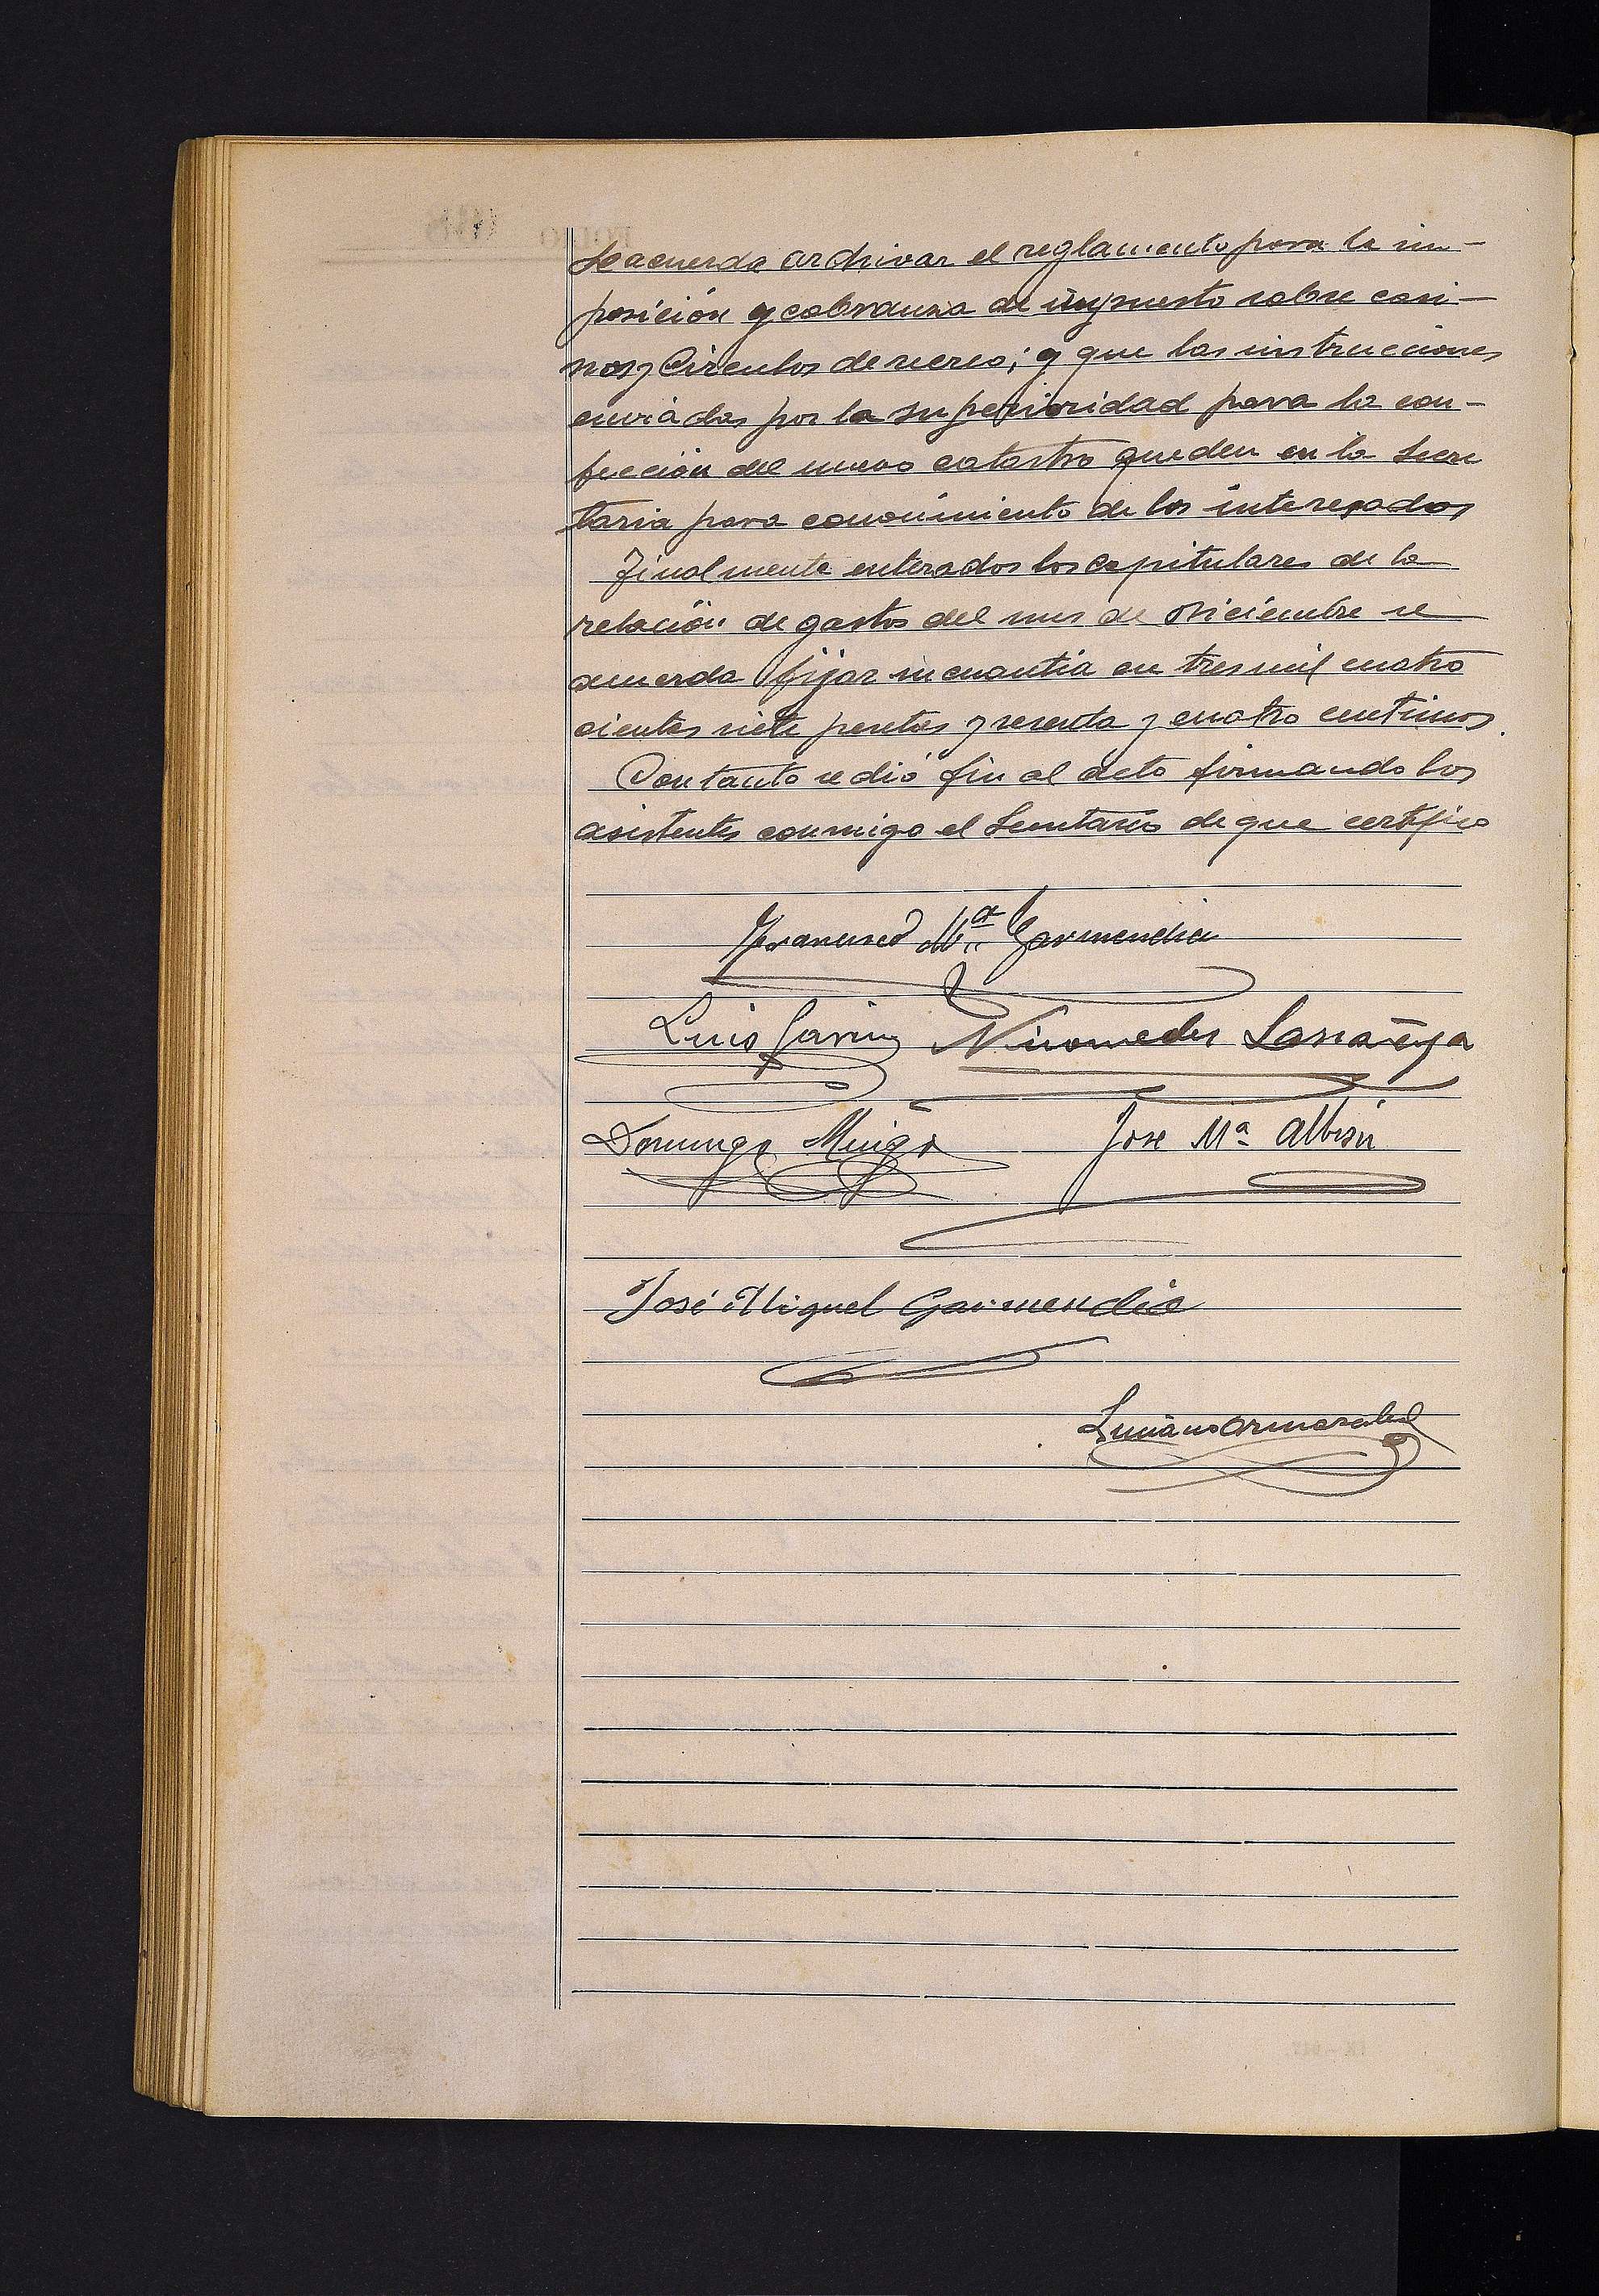 Se acuerda archivar el reglamento para la im-
posición y cobranza de impuesto sobre casi-
nos y Circulos de recreo; y que las instrucciones
enviadas por la superioridad para la con-
fección del nuevo catastro queden en la Secre
taria para conocimiento de los interesados
Finalmente enterados los capitulares de la
relación de gastos del mes de Diciembre se
acuerda fijar su cuantia en tres mil cuatro
cientas siete pesetas y sesenta y cuatro centimos.
Con tanto se dió fin al acto firmando los
asistentes conmigo el Secretario de que certifico
Francisco Mª Garmendia
Luis Garin Nicomedes Larrañaga
Domingo Jose Mª Albisu
José Miguel Garmendia
Luciano